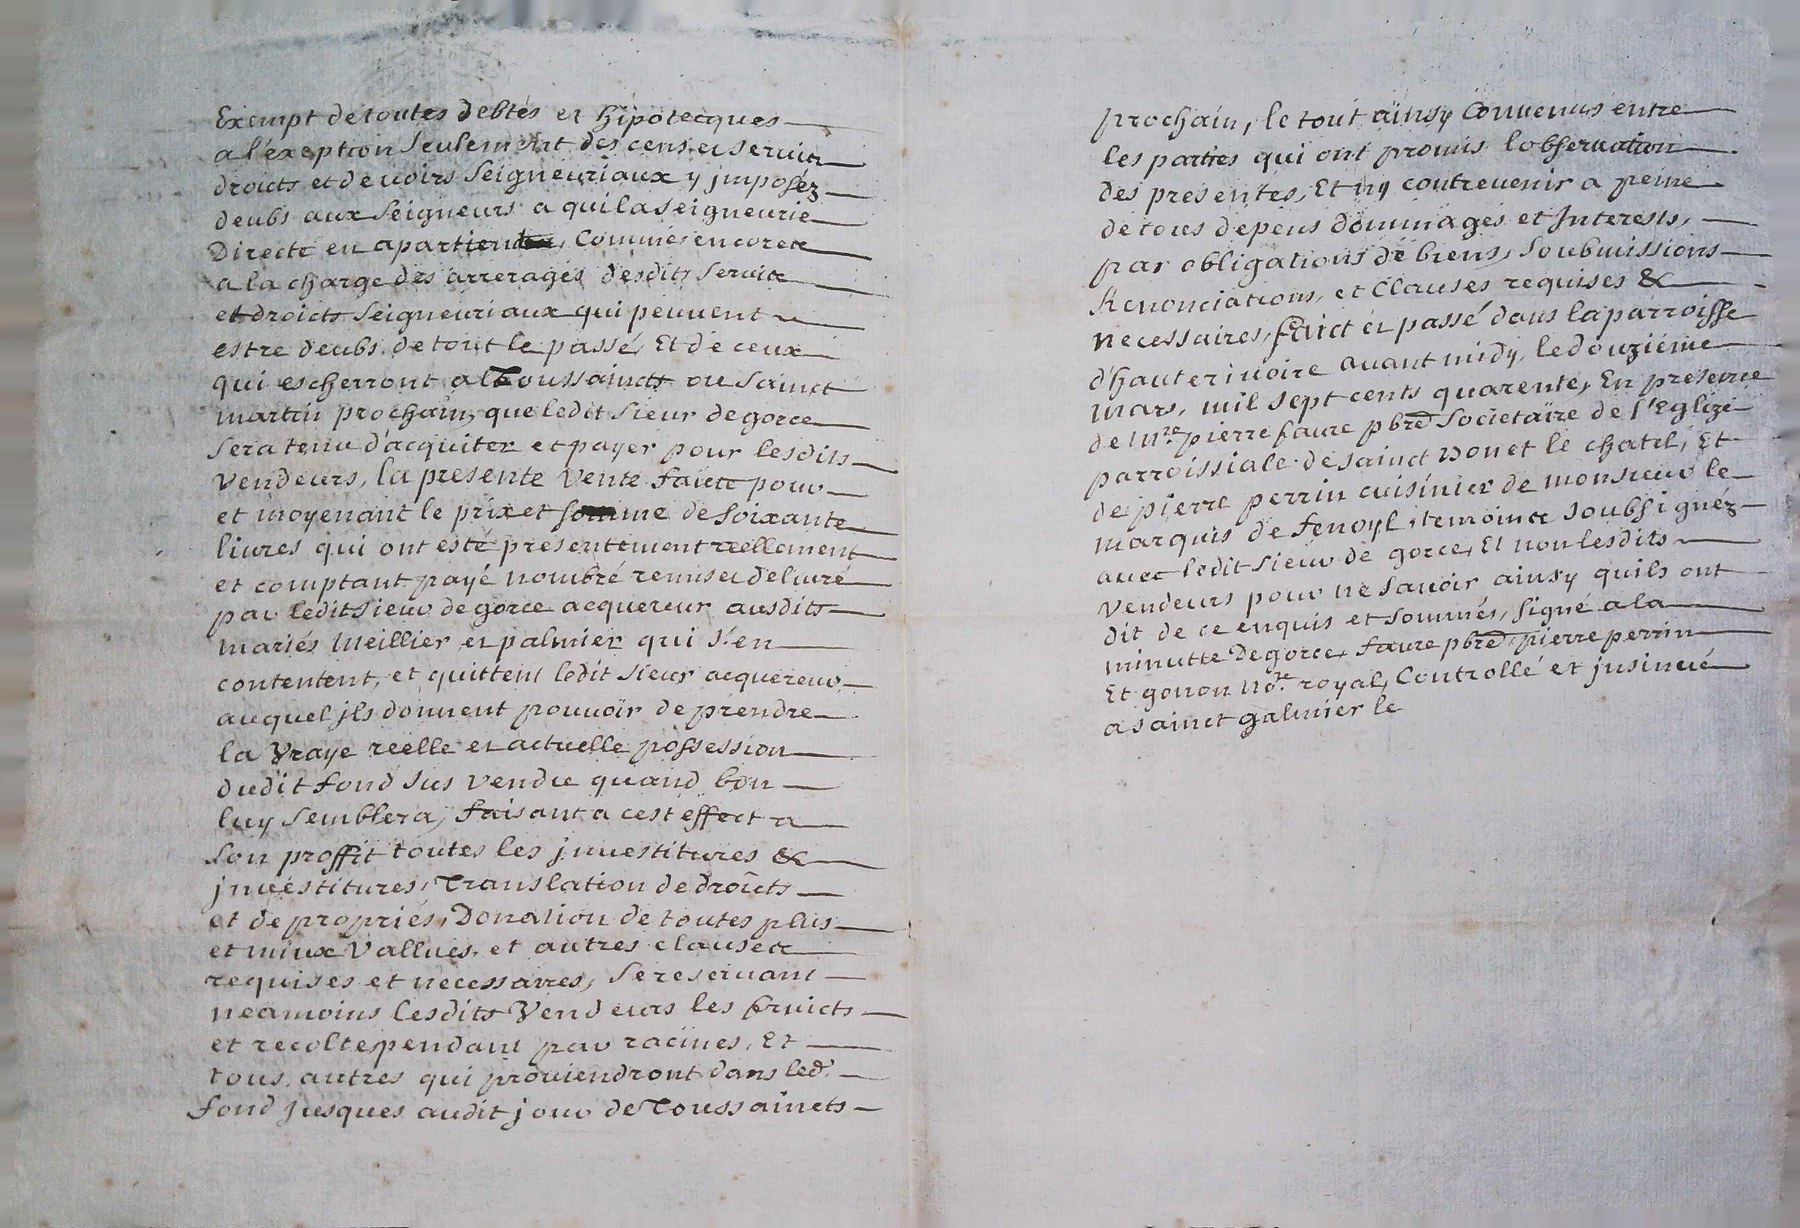 Exempt de toutes debtes et hipotecques
a l'exeption seulement des cens et servis
droicts et devoirs seigneuriaux y jmposéz
deubs aux seigneurs a qui la seigneurie
Directe en apartient, Comme encore
a la charge des arrerages desdits servis
et droicts seigneuriaux qui peuvent
estre deubs de tout le passé, Et de ceux
qui escherront a la Toussaincts ou Sainct
martin prochain, que ledit sieur degorce
sera tenu d'acquiter et payer pour lesdits
Vendeurs, la presente Vente faicte pour
et moyenant le prix et somme de soixante
livres qui ont esté presentement reellement
et comptant payé nombré remis et delivré
par ledit sieur degorce acquereur ausdits
mariés Meillier et palmier qui s'en
contentent, et quittent ledit sieur acquereur
auquel jls donnent pouvoir de prendre
la Vraye reelle et actuelle possession
dudit fond sus vendu quand bon
luy semblera, faisant a cest effect a
son proffit toutes les jnvestitures &
jnvestitures, Translation de droicts
et de propriés, Donation de toutes plus
et mieux Vallues, et autres clauses
requises et necessaires, se reservant
neamoins lesdits Vendeurs les fruicts
et recolte pendant par racines, Et
tous autres qui proviendront dans led.
fond jusques audit jour de Toussaincts
prochain, le tout ainsy Convenus entre
les parties qui ont promis l'observation
des presentes, Et ny contrevenir a peine
de tous depens dommages et Interests,
par obligations de biens, soubmissions
Renonciations, et Clauses requises &
necessaires, faict et passé dans la parroisse
d'hauterivoire avant midy, le douziéme
Mars, mil sept cents quarente, En presence
de Mre. pierre faure pbre Societaire de l'Eglize
parroissiale de sainct Donet le chatel, Et
de pierre perrin cuisinier de monsieur le
marquis de fenoyl, temoins soubsignéz
avec ledit sieur de gorce, Et non lesdits
vendeurs pour ne savoir ainsy quils ont
dit de ce enquis et sommés, signé a la
minutte Degorce, faure pbre, pierre perrin
Et gonon no.re royal, Controllé et jnsinué
a sainct galmier le